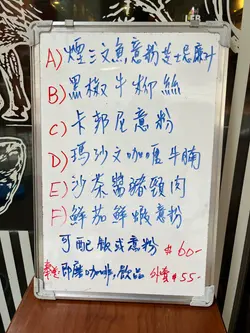 A) 煙三文魚意粉芝士忌廉汁
B) 黑椒牛柳絲
C) 卡邦尼意粉
D) 瑪沙文咖喱牛腩
E) 沙茶醬豬頸肉
F) 鮮茄鮮蝦意粉
可配飯或意粉 $60-
即磨咖啡, 飲品 外賣 $55-